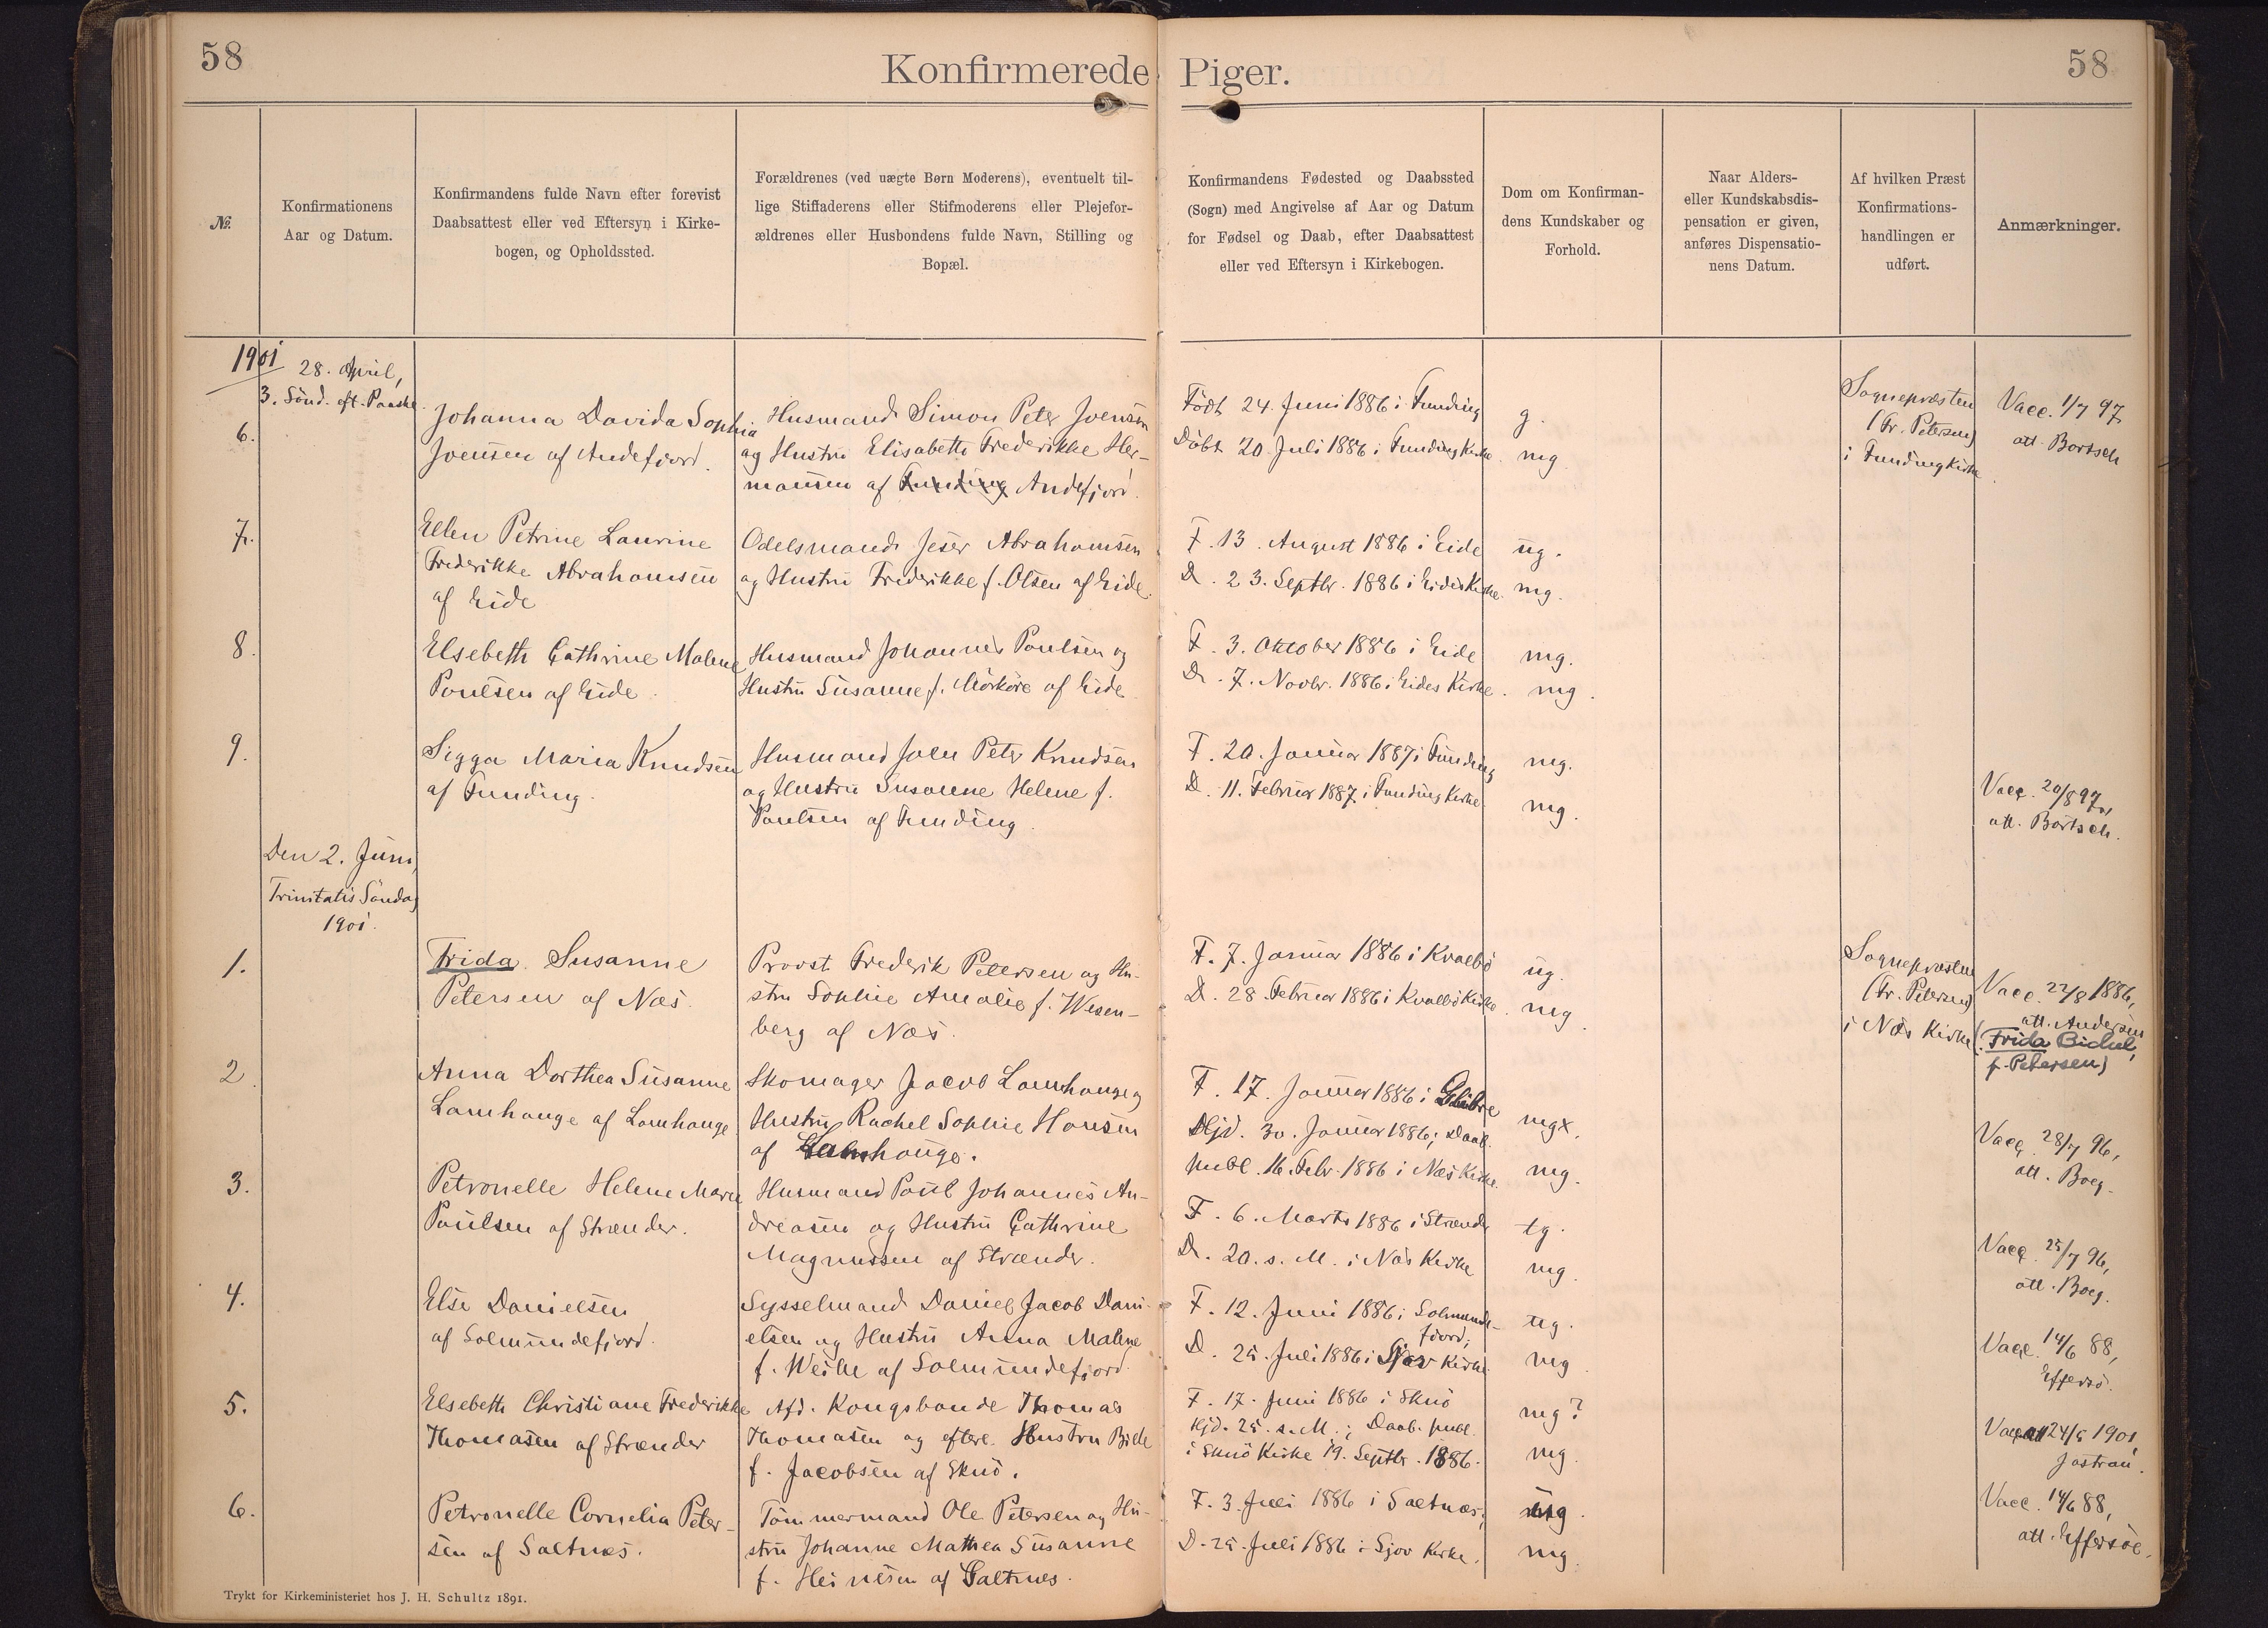 58
Konfirmerede Piger.
58
№.
Konfirmationens
Aar og Datum.
Konfirmandens fulde Navn efter forevist
Daabsattest eller ved Eftersyn i Kirke-
bogen, og Opholdssted.
Forældrenes (ved uægte Børn Moderens), eventuelt til-
lige Stiffaderens eller Stifmoderens eller Plejefor-
ældrenes eller Husbondens fulde Navn, Stilling og
Bopæl.
Konfirmandens Fødested og Daabssted
(Sogn) med Angivelse af Aar og Datum
for Fødsel og Daab, efter Daabsattest
eller ved Eftersyn i Kirkebogen.
Dom om Konfirman-
dens Kundskaber og
Forhold.
Naar Alders-
eller Kundskabsdis-
pensation er given,
anføres Dispensatio-
nens Datum.
Af hvilken Præst
Konfirmations-
handlingen er
udført.
Anmærkninger.
1901
28. April,
3. Sönd. eft. Paaske.
6.
Johanna Davida Sophia
Joensen af Andefjord.
Husmand Simon Peter Joensen
og Hustru Elisabeth Frederikke Her-
mansen af Funding Andefjord.
Födt 24. Juni 1886 i Funding
Döbt 20. Juli 1886 i Funding Kirke.
g.
mg.
Sognepræsten
(Fr. Petersen)
i Funding Kirke.
Vacc. 1/7 97,
att. Bortsch
7.
Ellen Petrine Laurine
Frederikke Abrahamsen
af Eide
Odelsmand Jeser Abrahamsen
og Hustru Frederikke f. Olsen af Eide.
F. 13. August 1886 i Eide
D. 23. Septbr. 1886 i Eides Kirke.
ug.
mg.
8.
Elsebeth Cathrine Malene
Poulsen af Eide.
Husmand Johannes Poulsen og
Hustru Susanne f. Mörköre af Eide
F. 3. Oktober 1886 i Eide
D. 7. Novbr. 1886 i Eides Kirke.
mg.
mg.
9.
Sigga Maria Knudsen
af Funding.
Husmand Joen Peter Knudsen
og Hustru Susanne Helene f.
Poulsen af Funding.
F. 20. Januar 1887 i Funding
D. 11. Februar 1887 i Funding Kirke.
mg.
mg.
Vacc. 20/8 97,
att. Bortsch.
Den 2. Juni,
Trinitatis Söndag
1901.
1.
Frida Susanne
Petersen af Næs.
Provst Frederik Petersen og Hu-
stru Sophie Amalie f. Wesen-
berg af Næs.
F. 7. Januar 1886 i Kvalbö
D. 28. Februar 1886 i Kvalbö Kirke.
ug.
mg.
Sognepræsten
(Fr. Petersen)
i Næs Kirke.
Vacc. 22/8 1886,
att. Andersen
(Frida Bichel,
f. Petersen)
2.
Anna Dorthea Susanne
Lamhauge af Lamhauge
Skomager Jacob Lamhauge og
Hustru Rachel Sophie Hansen
af Lamhauge.
F. 17. Januar 1886 i
Hjd. 30. Januar 1886; Daab.
publ. 16. Febr. 1886 i Næs Kirke.
mgx.
mg.
Vacc. 28/7 96,
att. Boeg.
3.
Petronelle Helene Marie
Poulsen af Strænder.
Husmand Poul Johannes An-
dreasen og Hustru Cathrine
Magnussen af Strænder.
F. 6. Marts 1886 i Strænder
D. 20. s. M. i Næs Kirke
tg.
mg.
Vacc. 25/7 96,
att. Boeg.
4.
Else Danielsen
af Solmundefjord.
Sysselmand Daniel Jacob Dani-
elsen og Hustru Anna Malene
f. Weihe af Solmundefjord.
F. 12. Juni 1886 i Solmunde-
fjord;
D. 25. Juli 1886 i Sjov Kirke.
ug.
mg.
Vacc. 14/6 88,
Effersö.
5.
Elsebeth Christiane Frederikke
Thomasen af Strænder
Afd. Kongsbonde Thomas
Thomasen og efterl. Hustru Bille
f. Jacobsen af Skuö.
F. 17. Juni 1886 i Skuö
Hjd. 25. s. M.; Daab. publ.
i Skuö Kirke 19. Septbr. 1886.
mg?
mg.
24/5 1901,
Jastrau.
6.
Petronelle Cornelia Peter-
sen af Saltnæs.
Tömmermand Ole Petersen og Hu-
stru Johanne Mathea Susanne
f. Heinesen af Saltnæs.
F. 3. Juli 1886 i Saltnæs;
D. 25. Juli 1886 i Sjov Kirke.
mg.
mg.
Vacc. 14/6 88,
att. Effersöe.
Trykt for Kirkeministeriet hos J. H. Schultz 1891.